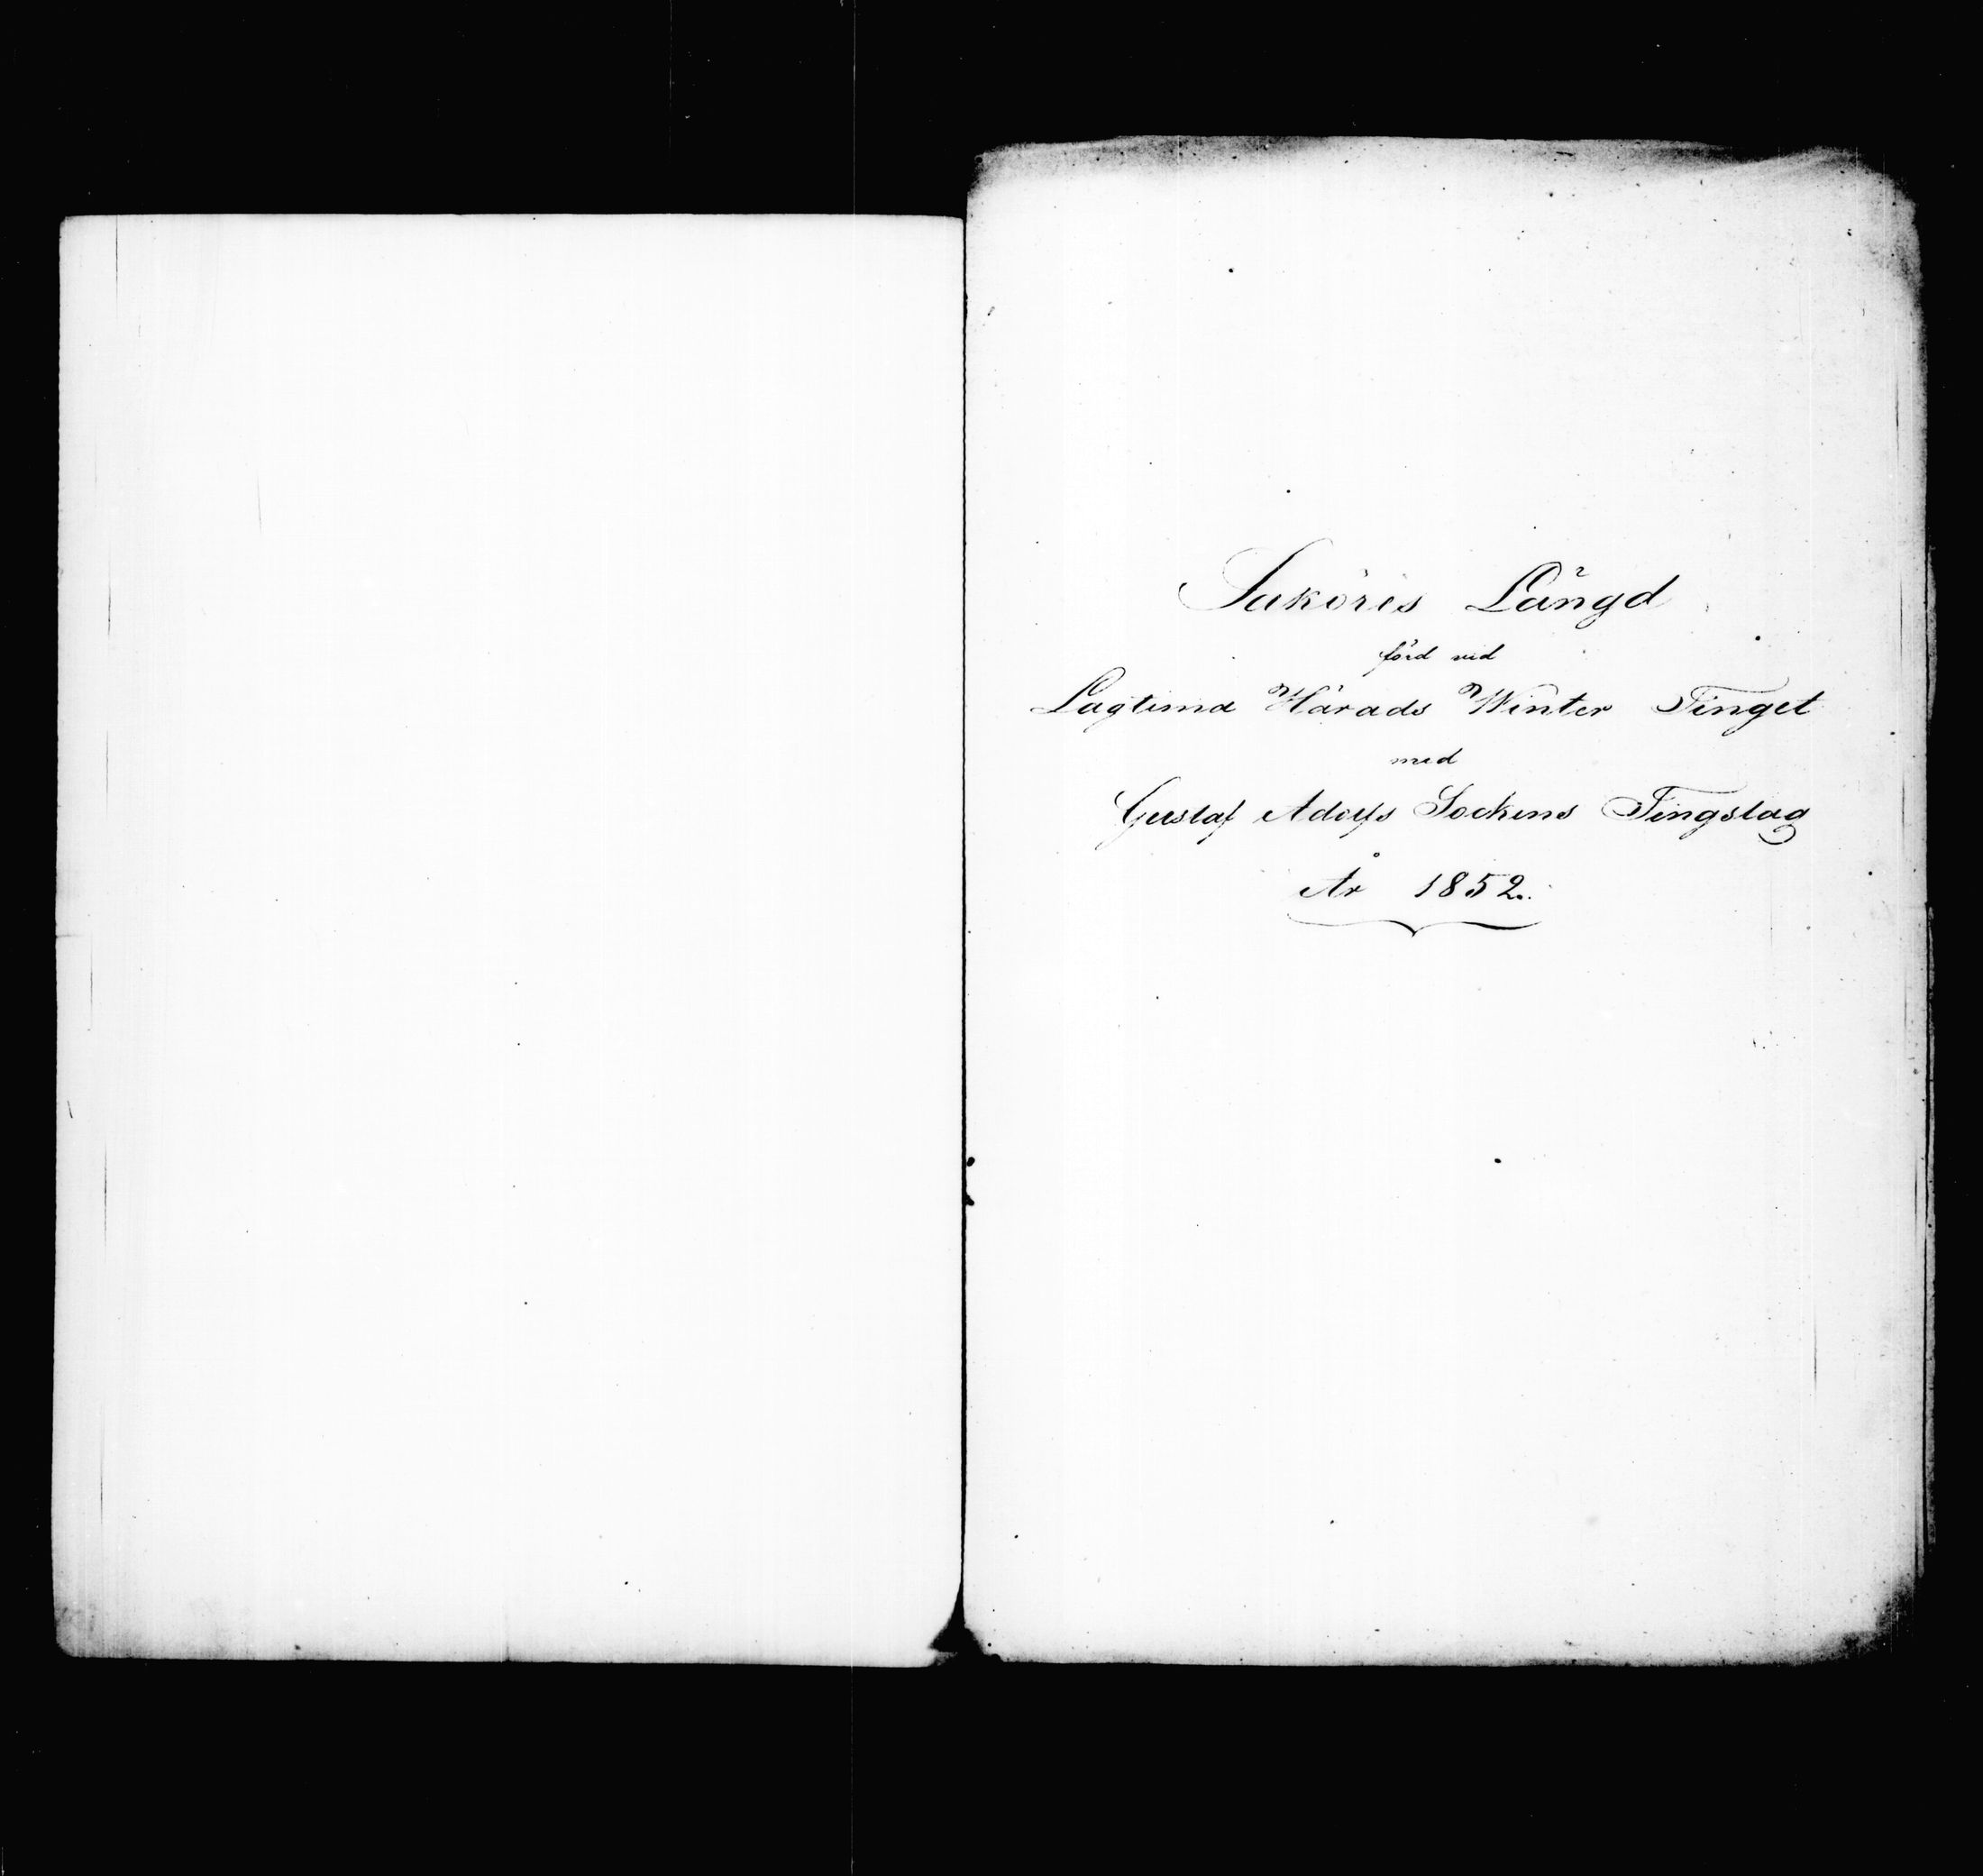 Saköres Längd
förd vid
Lagtima Härads Winter Tinget
med
Gustaf Adolfs Sockens Tingslag
År 1852.